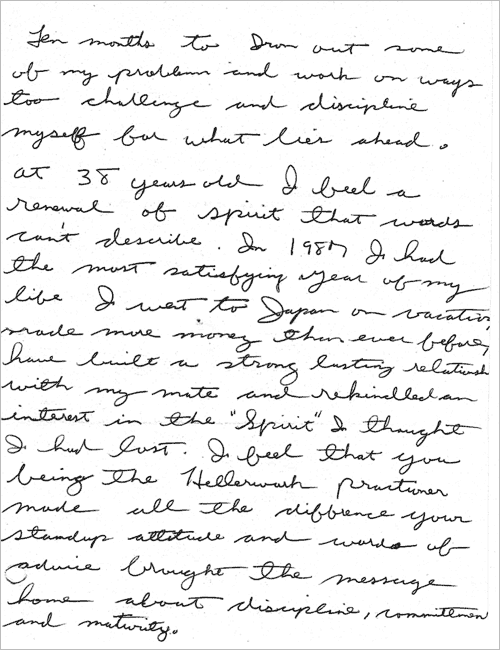 Ten months to Iron out some
of my problem and work on ways
too challenge and discipline
myself for what lies ahead.
at 38 years old I feel a
renewal of spirit that words
can't describe. In 1987 I had
the most satisfying year of my
life I went to Japan on vacation
made more money than ever before,
have built a strong lasting relationsh
with my mate and rekindled an
interest in the "Spirit" I thought
I had lost. I feel that you
being the Hellerwork practioner
made all the diffrence your
standup attitude and words of
advice brought the message
home about discipline, committmen
and maturity.